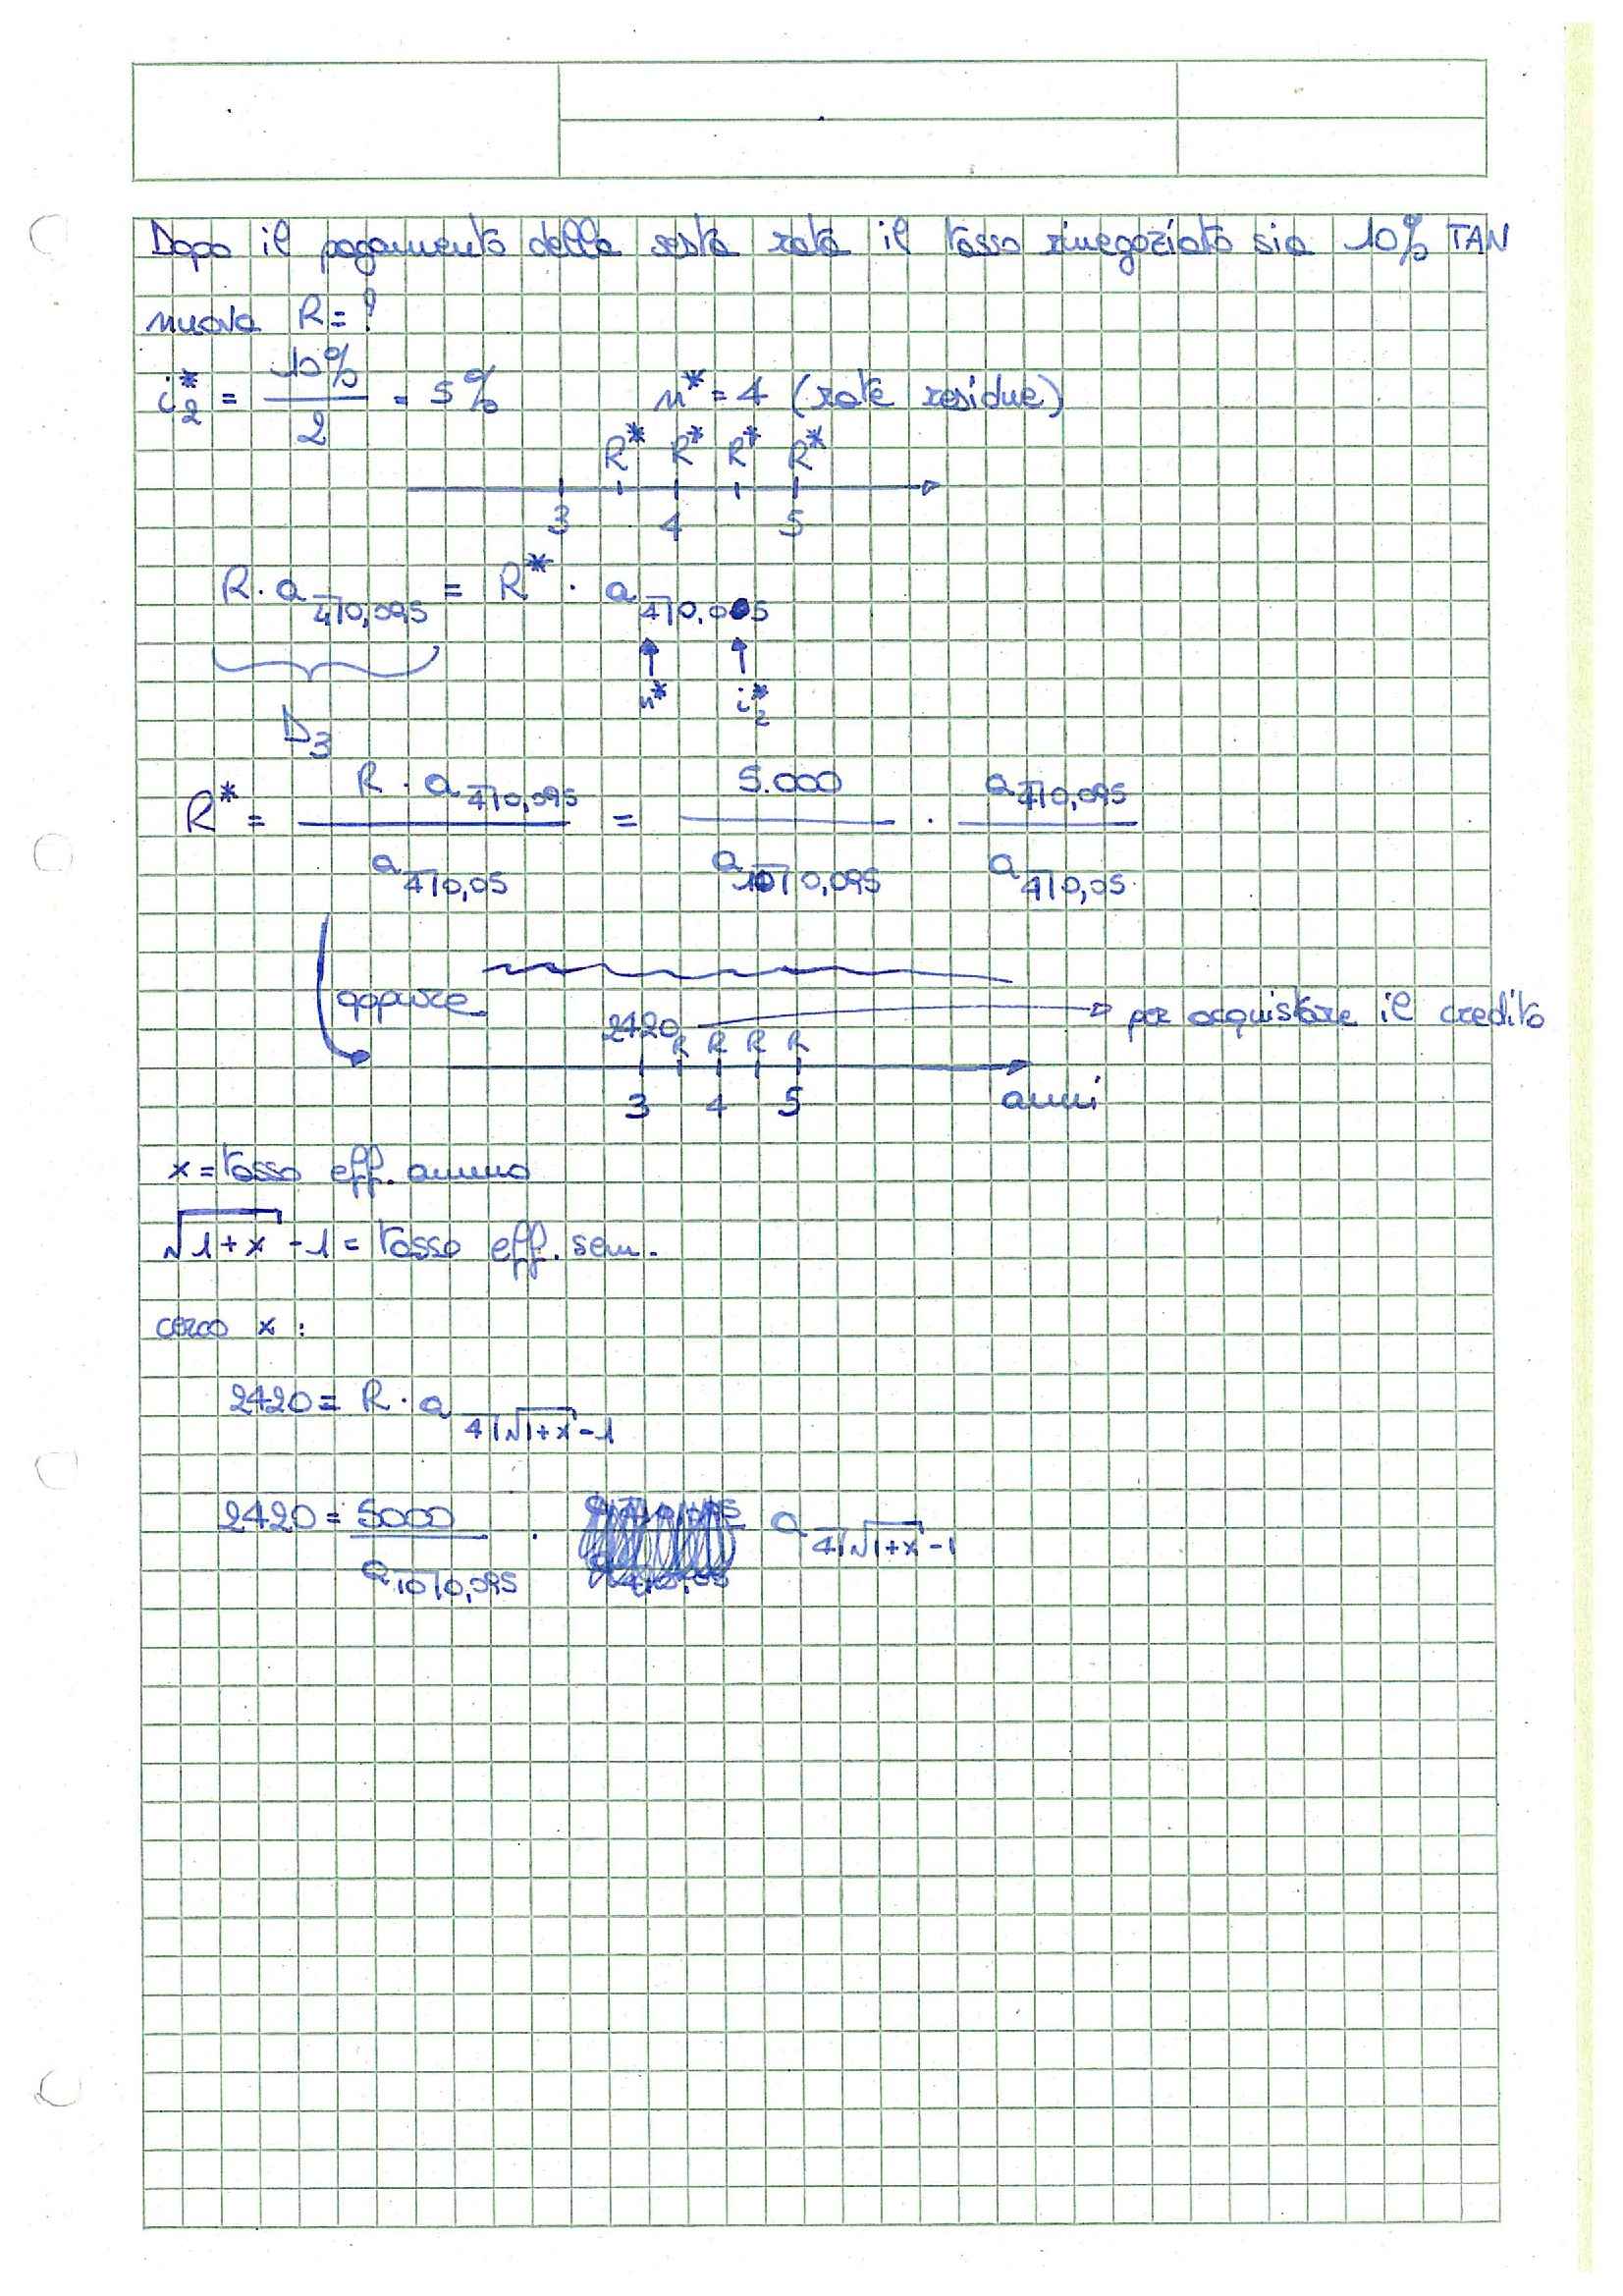 Dopo il pagamento della sesta rata il tasso rinegoziato sia 10% TAN
nuova R = ?
i*₂ = 10% / 2 = 5%    n* = 4 (rate residue)
R* R* R* R*
3 4 5
R · a 4̅| 0,095 = R* · a 4̅| 0,05
n* i*₂
D₃
R* = R · a 4̅| 0,095 / a 4̅| 0,05 = 5.000 / a 10̅| 0,095 · a 4̅| 0,095 / a 4̅| 0,05
oppure
2420 → per acquistare il credito
R R R R
3 4 5 anni
x = tasso eff. annuo
√1+x - 1 = tasso eff. sem.
cerco x :
2420 = R · a 4̅| √1+x - 1
2420 = 5000 / a 10̅| 0,095 · a 4̅| √1+x - 1